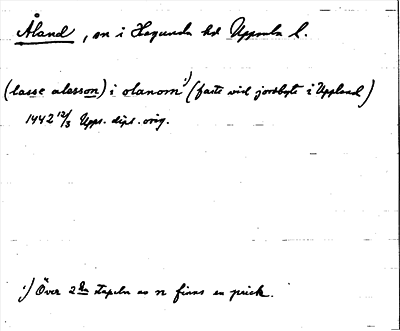 Åland, sn i Hagunda hd Uppsala l.
(lasse alasson) i olanom ¹) (faste vid jordbyte i Uppland)
1442 12/3 Upps. dipl. orig.
¹) Över 2 dra stapeln av n finns en prick.